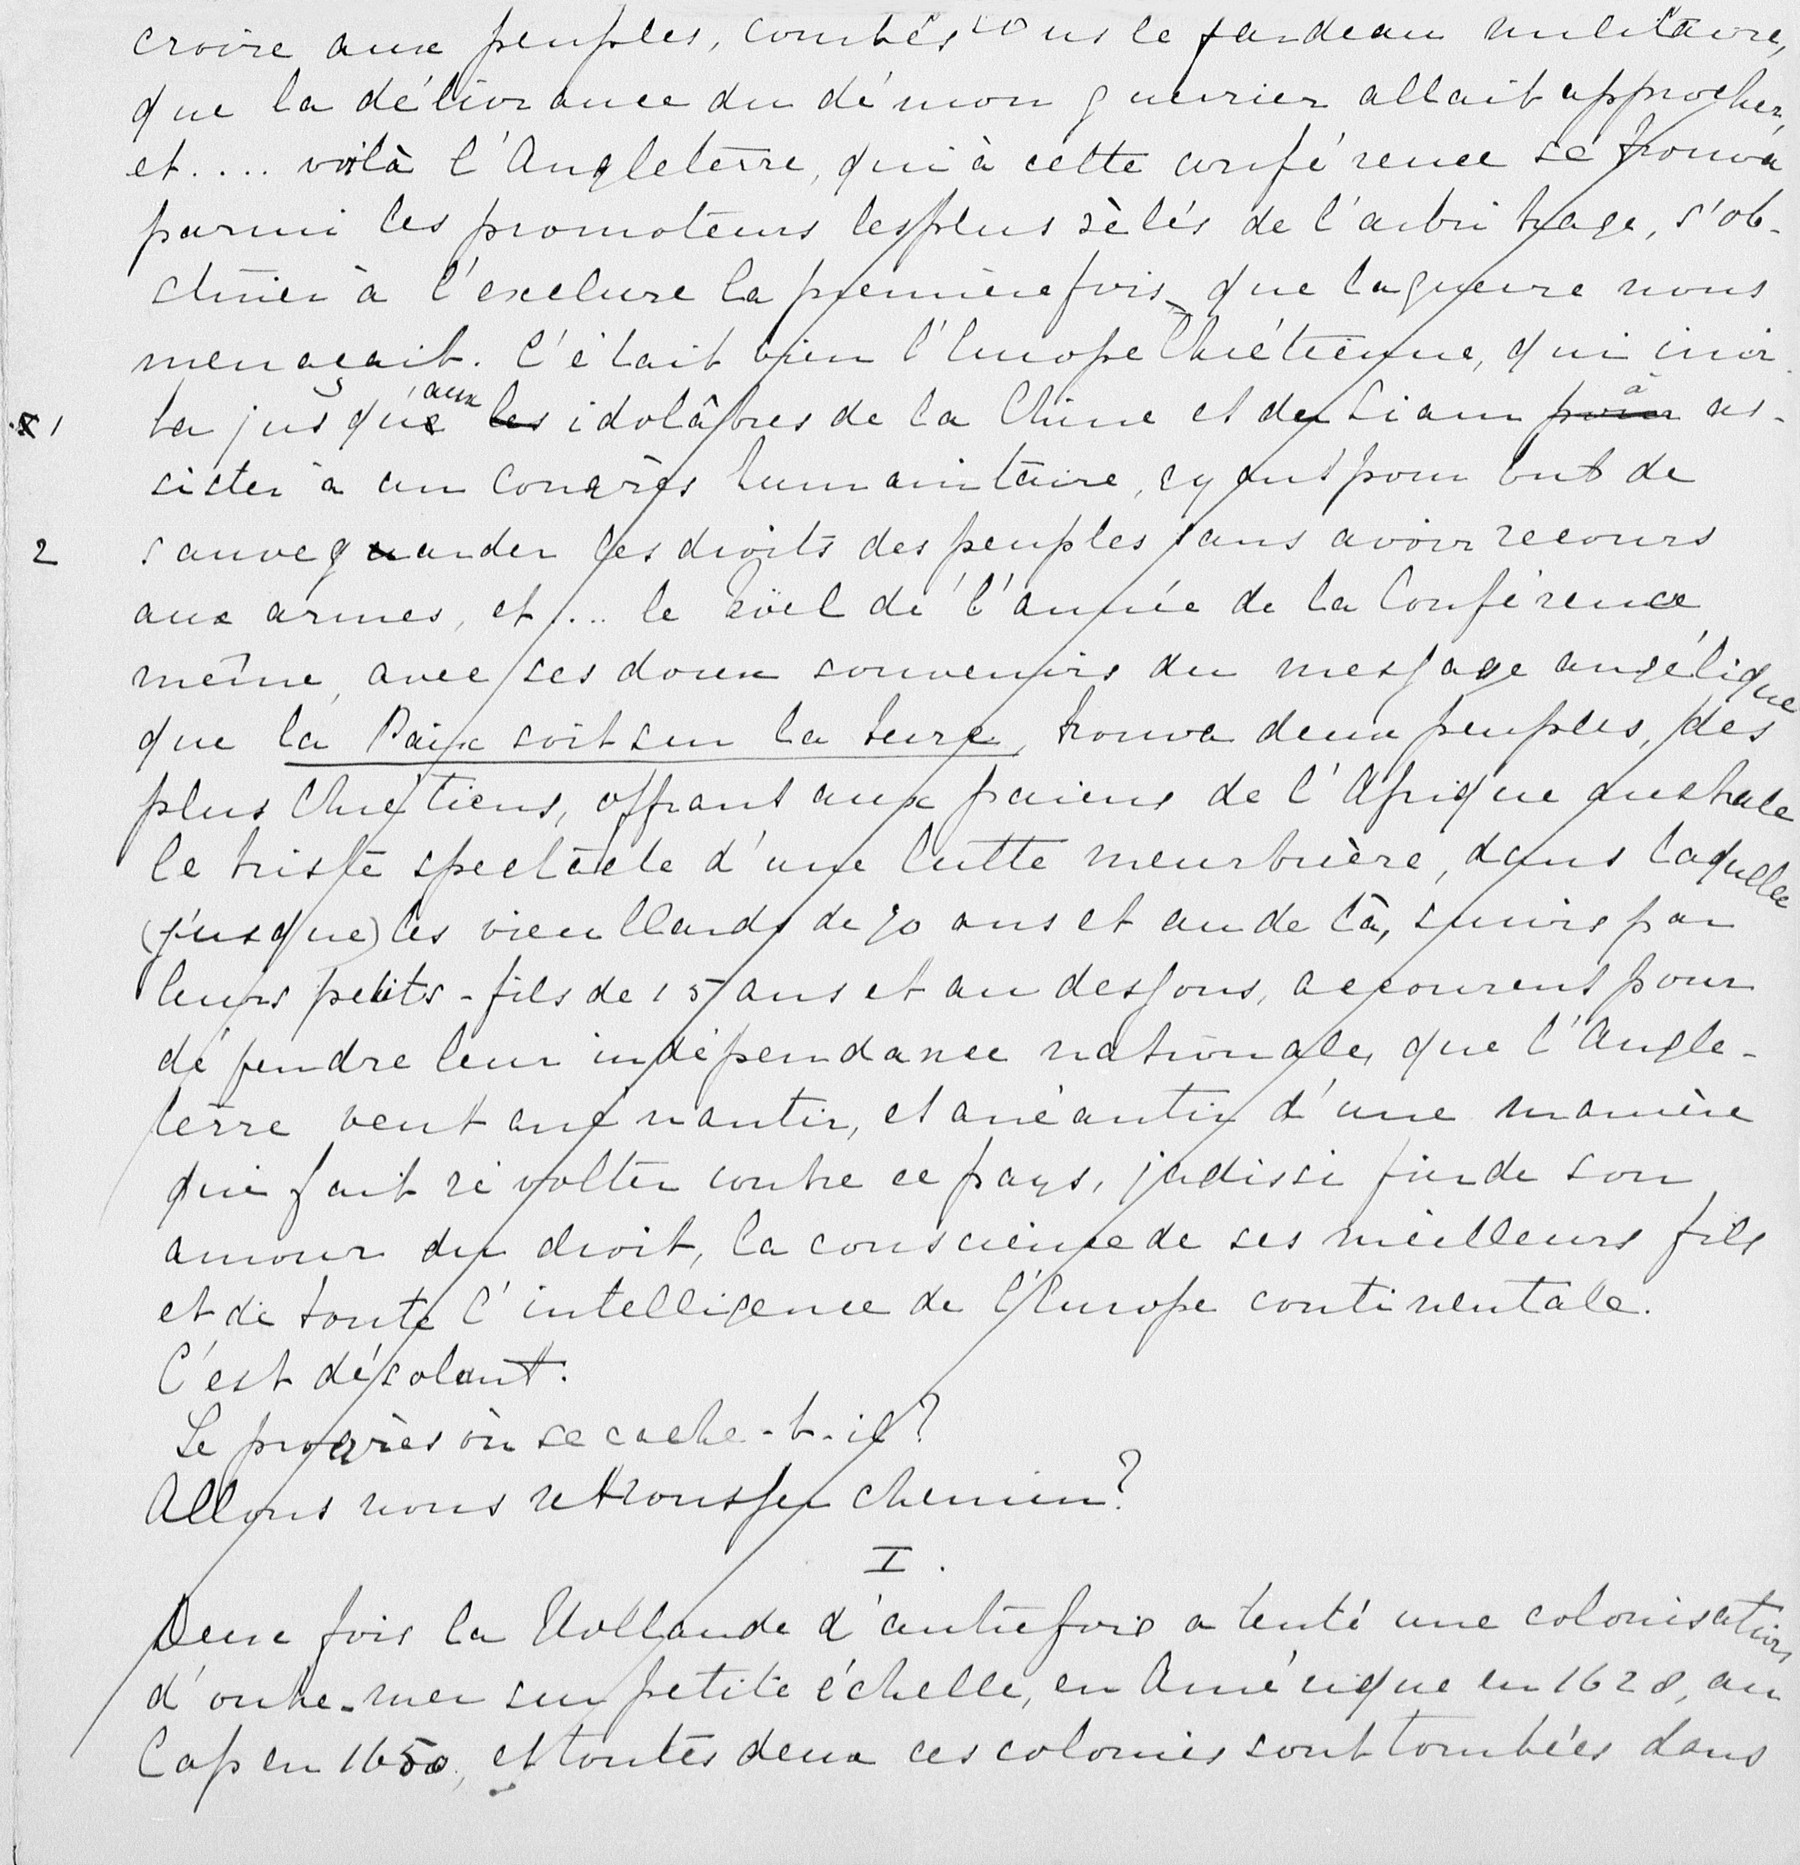 croire aux peuples, courbés sous le fardeau militaire,
que la délivrance du démon guerrier allait approcher,
et .... voilà l'Angleterre, qui à cette conférence se trouva
parmi les promoteurs les plus zèlés de l'arbitrage, s'ob-
stiner à l'exclure la première fois, que la guerre nous
menaçait. C'était bien l'Europe Chrétienne, qui invi-
1 ta jusqu'aux les idolâtres de la Chine et de Siam pour à as-
sister à un Congrès humanitaire, ayant pour but de
2 sauvegarder les droits des peuples sans avoir recours
aux armes, et .... le Noël de l'année de la Conférence
même, avec ses doux souvenirs du message angélique
que la Paix soit sur la terre, trouva deux peuples, des
plus Chrétiens, offrant aux païens de l'Afrique australe
le triste spectacle d'une lutte meurtrière, dans laquelle
(jusque) les vieillards de 70 ans et au delà, suivis par
leurs petits-fils de 15 ans et au dessous, accourent pour
défendre leur indépendance nationale, que l'Angle-
terre veut anénantir, et anéantir d'une manière
qui fait révolter contre ce pays, jadis si fier de son
amour du droit, la conscience de ses meilleurs fils
et de toute l'intelligence de l'Europe continentale.
C'est désolant.
Le progrès où se cache-t-il?
Allons nous retrousser chemin?
I.
Deux fois la Hollande d'autrefois a tenté une colonisation
d'outre-mer sur petite échelle, en Amérique en 1628, au
Cap en 1650, et toutes deux ces colonies sont tombées dans